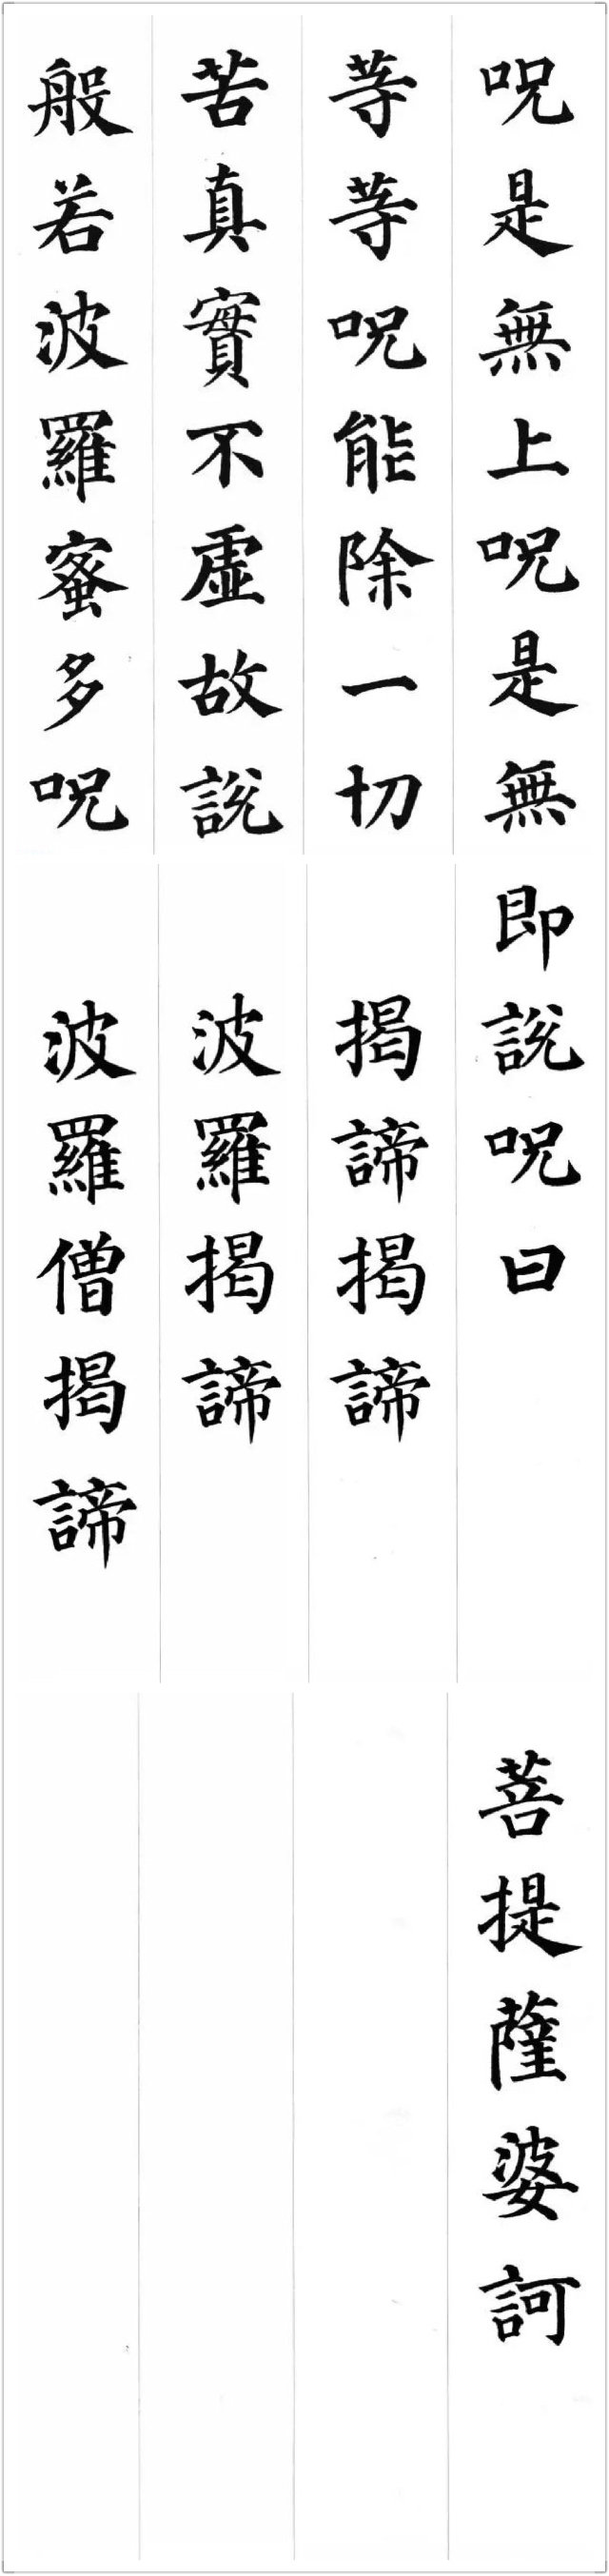 呪是無上呪是無
等等呪能除一切
苦真實不虛故說
般若波羅蜜多呪
即說呪曰
揭諦揭諦
波羅揭諦
波羅僧揭諦
菩提薩婆訶